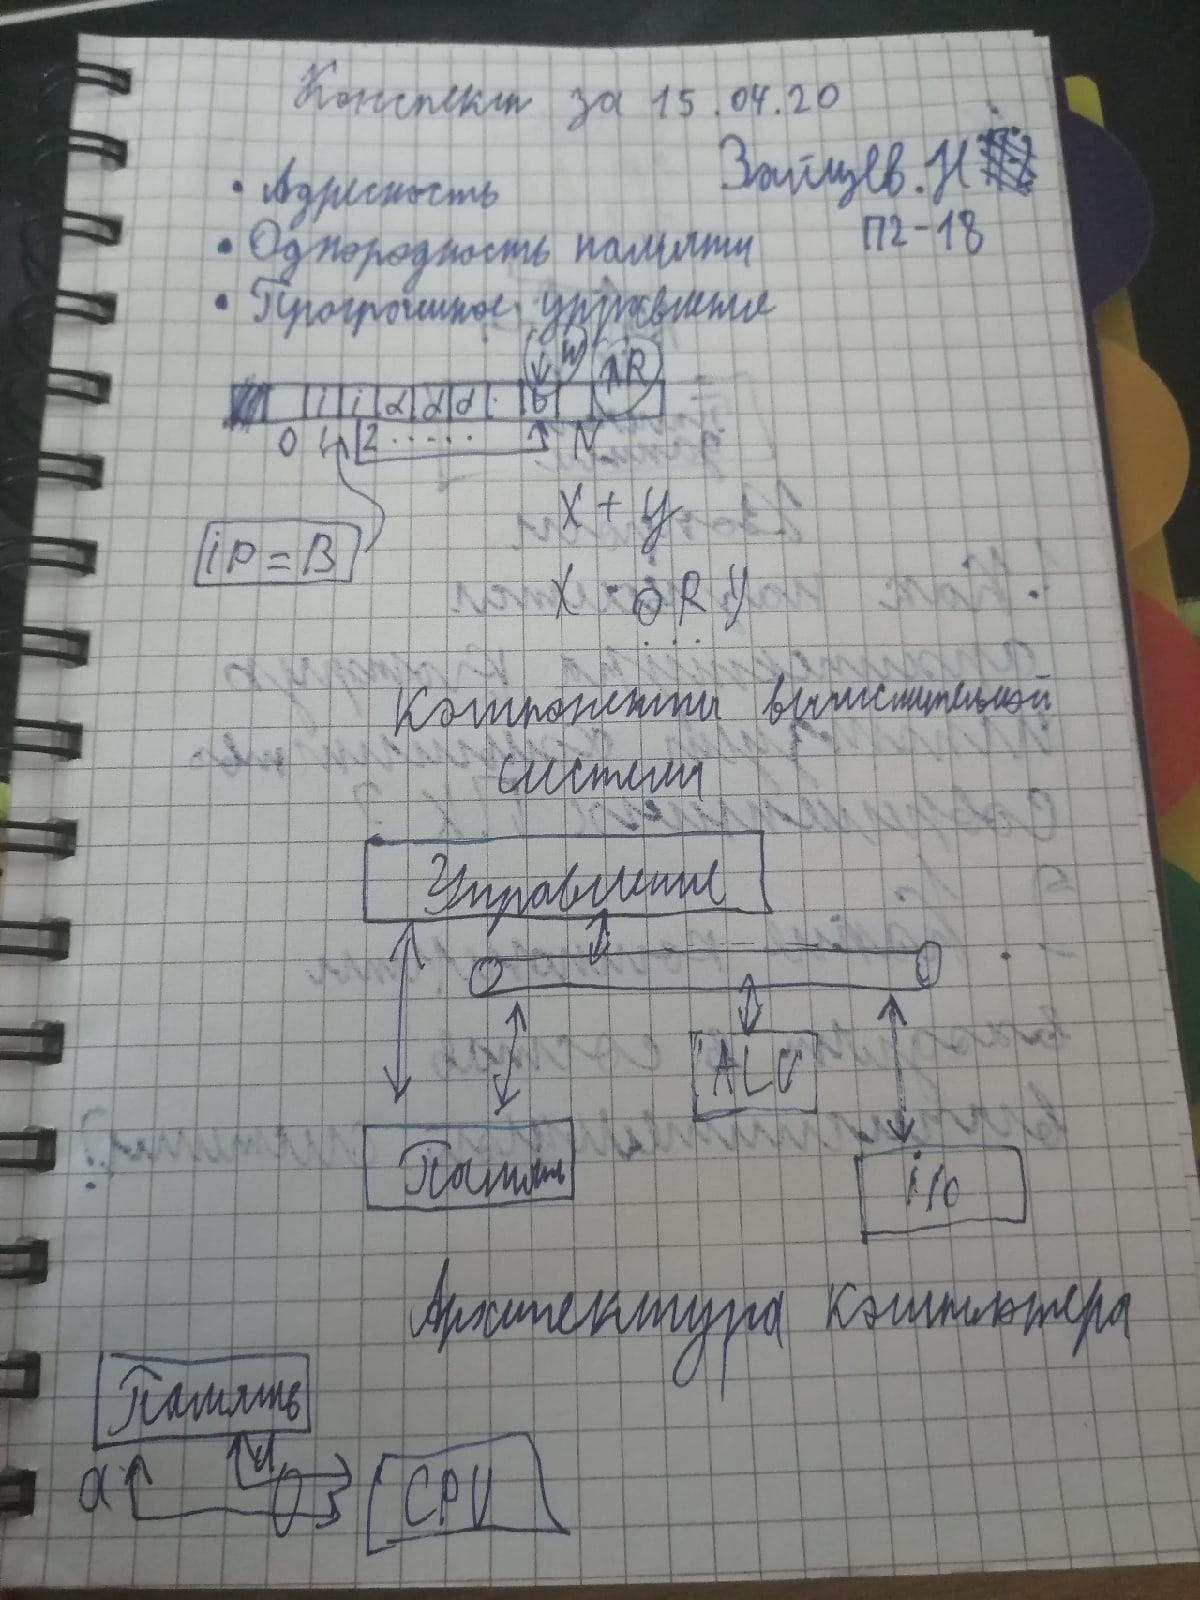 Конспект за 15.04.20
Зайцев.Н
П2-18
• Адресность
• Однородность памяти
• Програмное управление
W R
i i d d d . b
0 1 2 ...... N
X + Y
iP = B
X OR Y
Компоненты вычислительной
системы
Управление
ALU
Память
i/o
Архитектура компьютера
Память
CPU